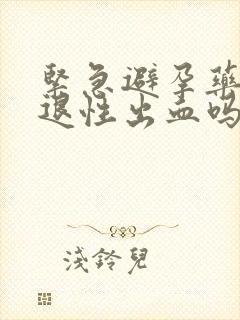 緊急避孕藥
退性出血嗎
淺鈴兒